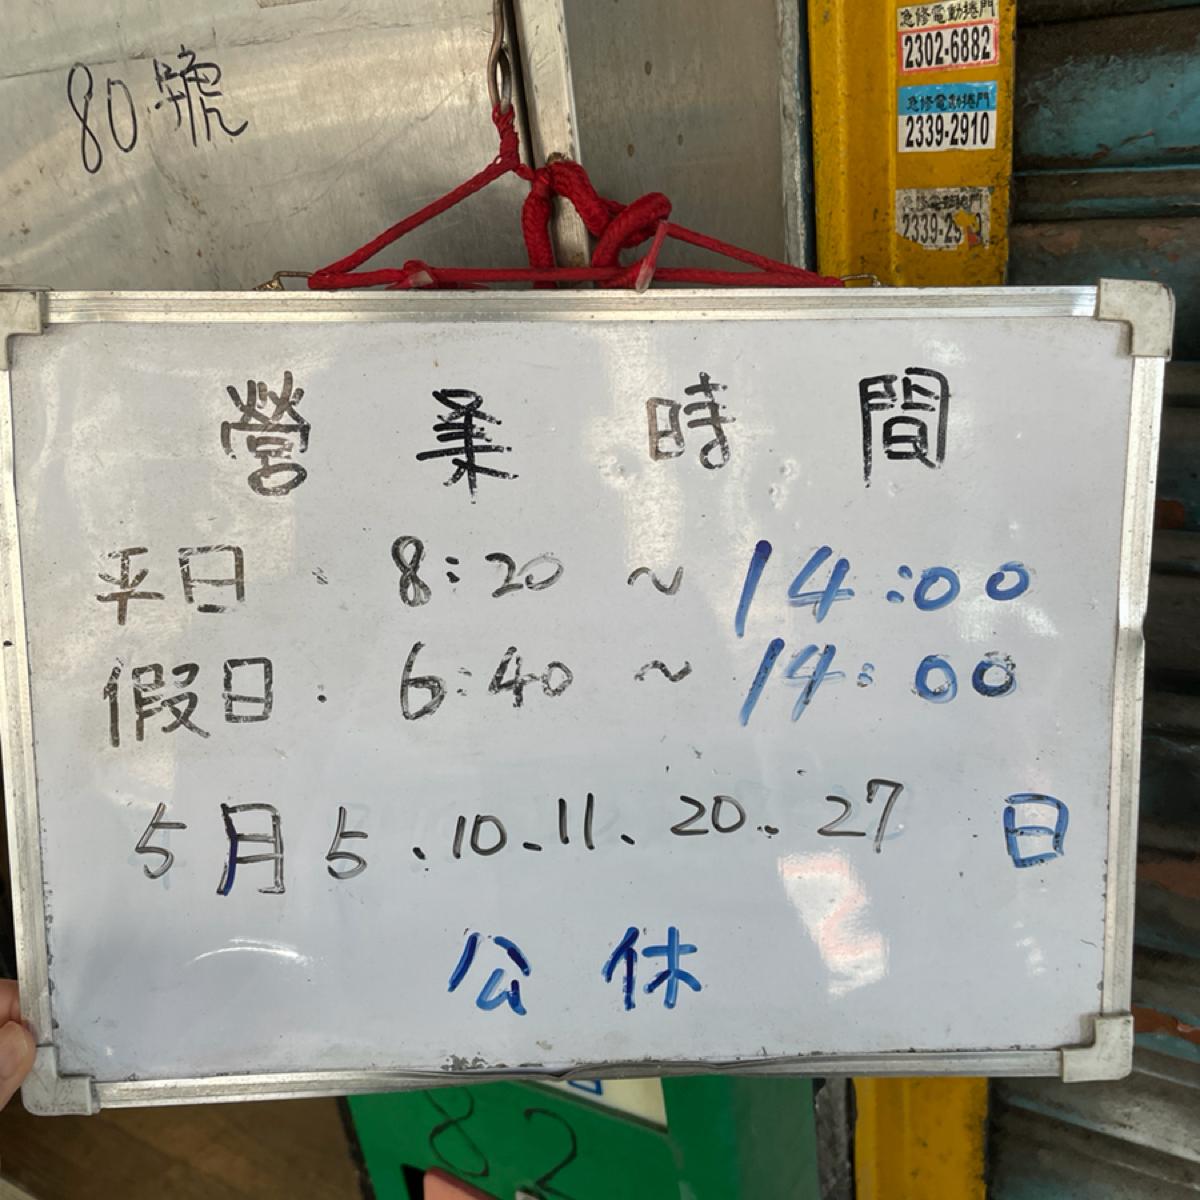 80號
急修電動捲門
2302-6882
急修電動捲門
2339-2910
急修電動捲門
營業時間
平日: 8:20 ~ 14:00
假日: 6:40 ~ 14:00
5月5、10、11、20、27 日
公休
82